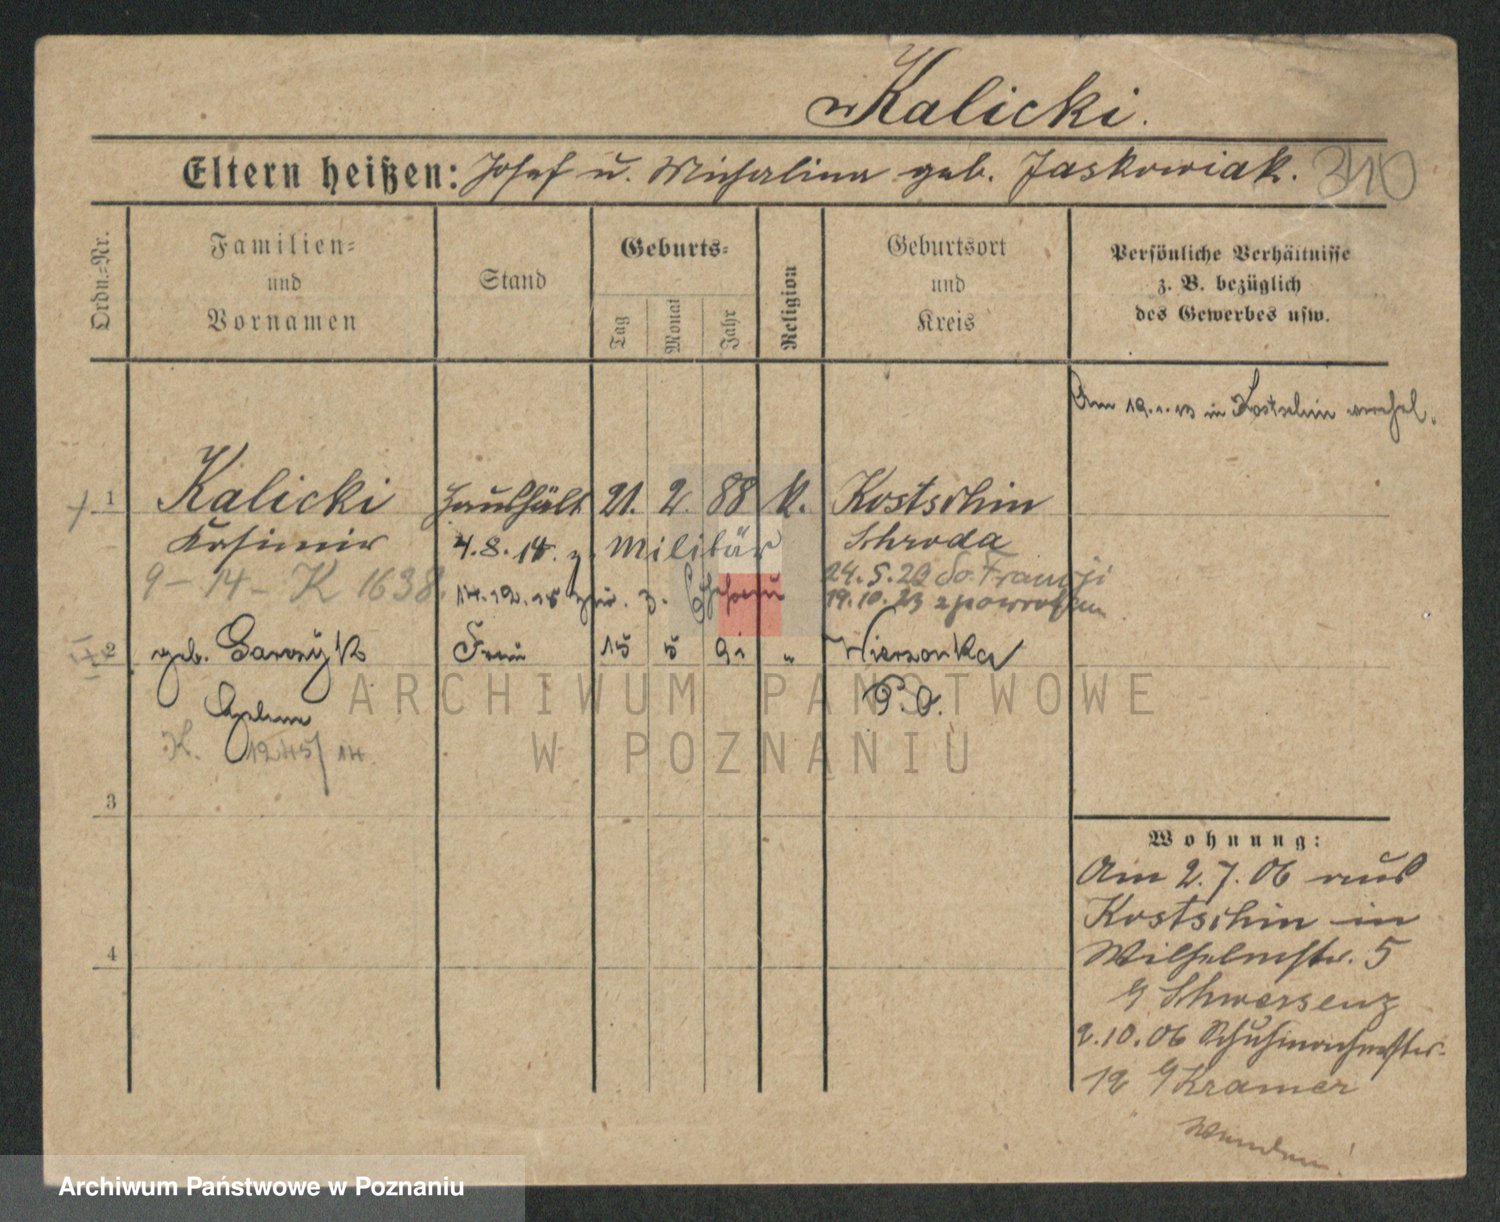 Kalicki.
Eltern heißen: Josef u. Michalina geb. Jaskowiak. 310
Ordn.-Nr.
Familien-
und
Vornamen
Stand
Geburts-
Tag
Monat
Jahr
Religion
Geburtsort
und
Kreis
Persönliche Verhältnisse
z. B. bezüglich
des Gewerbes usw.
Am 19.1.13 in Kostschin verehel.
1 Kalicki Haushält 21. 2. 88 k. Kostschin
Kasimir 4.8.14. z. Militär Schroda
9-14-K 1638. 24.5.20 do Francji
14.12.18 zur. z. 19.10.23 z powrotem
2 geb. Frau 15 5 91 " Wierzonka
P.O.
K. 1245/14.
3
4
Wohnung:
Am 2.7.06 aus
Kostschin in
Wilhelmstr. 5
b/ Schwersenz
2.10.06 Schuhmacherstr.
12 b/ Kramer
Wenden!
ARCHIWUM PAŃSTWOWE
W POZNANIU
Archiwum Państwowe w Poznaniu